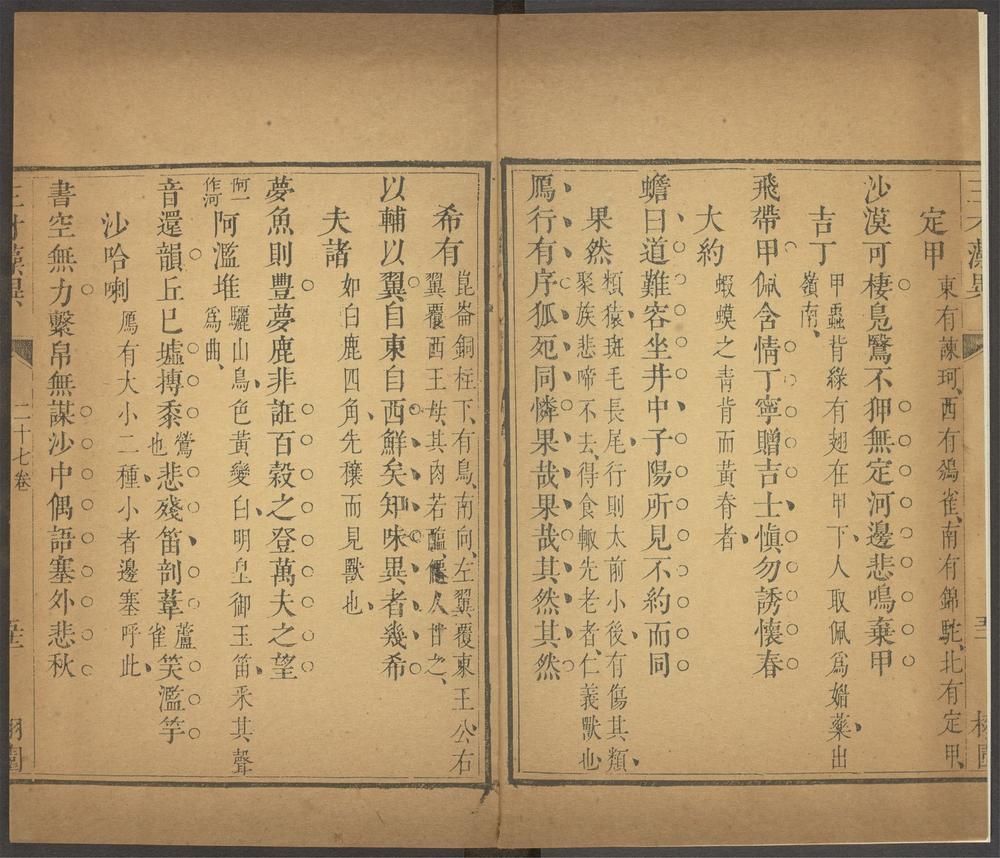 定甲 東有諫珂西有鴳雀南有錦駝北有定甲
沙漠可棲鳧鷖不狎無定河邊悲鳴棄甲
吉丁 甲蟲背綠有翅在甲下人取佩爲媚藥出
嶺南
飛帶甲佩含情丁寧贈吉士愼勿誘懷春
大約 蝦蟆之靑脊而黃脊者
蟾曰道難容坐井中子陽所見不約而同
果然 類猿斑毛長尾行則太前小後有傷其類
聚族悲啼不去得食輙先老者仁義獸也
鴈行有序狐死同憐果哉果哉其然其然
希有 崑崙銅柱下有鳥南向左翼覆東王公右
翼覆西王母其肉若醢僊人甘之
以輔以翼自東自西鮮矣知味異者幾希
夫諸 如白鹿四角先穰而見獸也
夢魚則豐夢鹿非誑百穀之登萬夫之望
阿一作河 阿濫堆 驪山鳥色黃變白明皇御玉笛采其聲
爲曲
音還韻丘已墟搏黍鶯也悲殘笛剖葦蘆雀笑濫竽
沙哈喇 鴈有大小二種小者邊塞呼此
書空無力繫帛無謀沙中偶語塞外悲秋
二十七卷